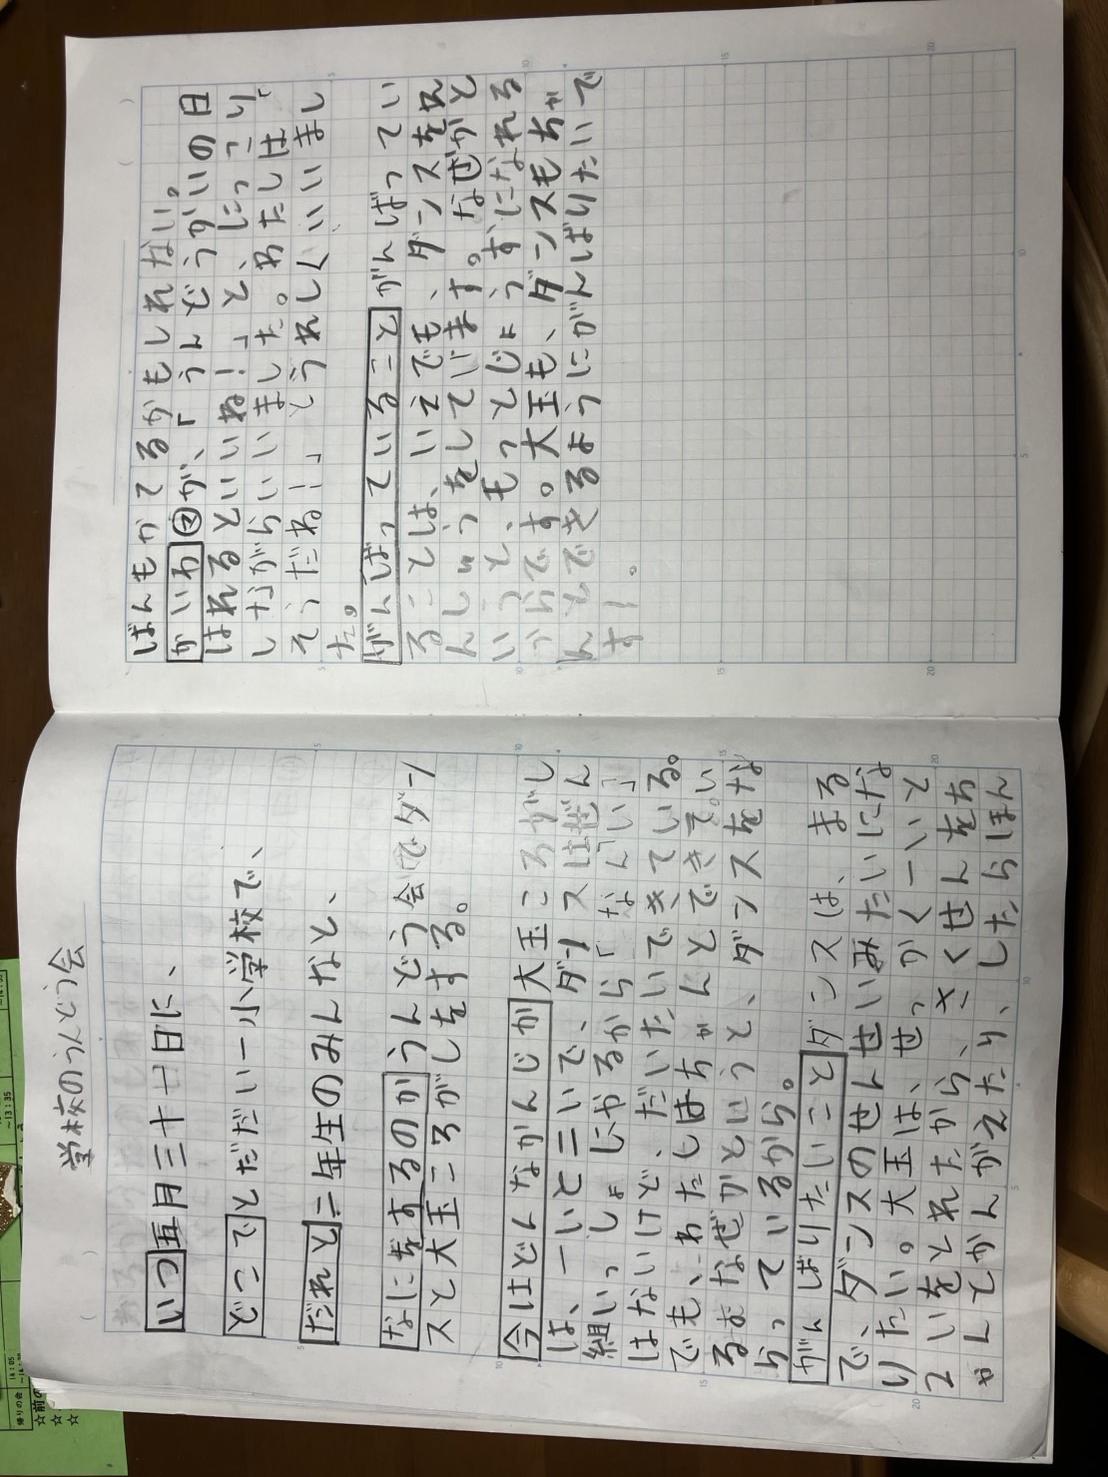 学校のうんどう会
いつ 五月三十一日に、
どこで とだだい一小学校で、
だれと 二年生のみんなと、
なにをするのか うんどう会でダン
スと大玉ころがしをする。
今はどんなかんじか 大玉ころがし
は、一いと二いで、ダンスはぜん
組いっしょにやるから「なんい」
はないけど、だいたいできている。
でも、わたしはちゃんとできてい
るよなぜかというと、ダンスをな
らっているから。
がんばりたいこと ダンスは、まる
で、ダンスのせんせいみたいにな
りたい。大玉は、せっかく一いと
2いをとれたから、さくせんをち
ゃんとかんがえたり、したらほん
ばんもかてるかもしれない。
かいわ が、「うんどうかいの日
はれるといいね!」と、にっこり
しながらいいました。わたしは「
そうだね!」とうれしくいいまし
た。
がんばっていること がんばってい
ることは、いえでも、ダンスをれ
んしゅうをしています。なぜかと
いうと、もっとじょうずになれる
からです。大玉も、ダンスもちゃ
んとできるようにがんばりたいで
す!。
帰りの会
～13:35